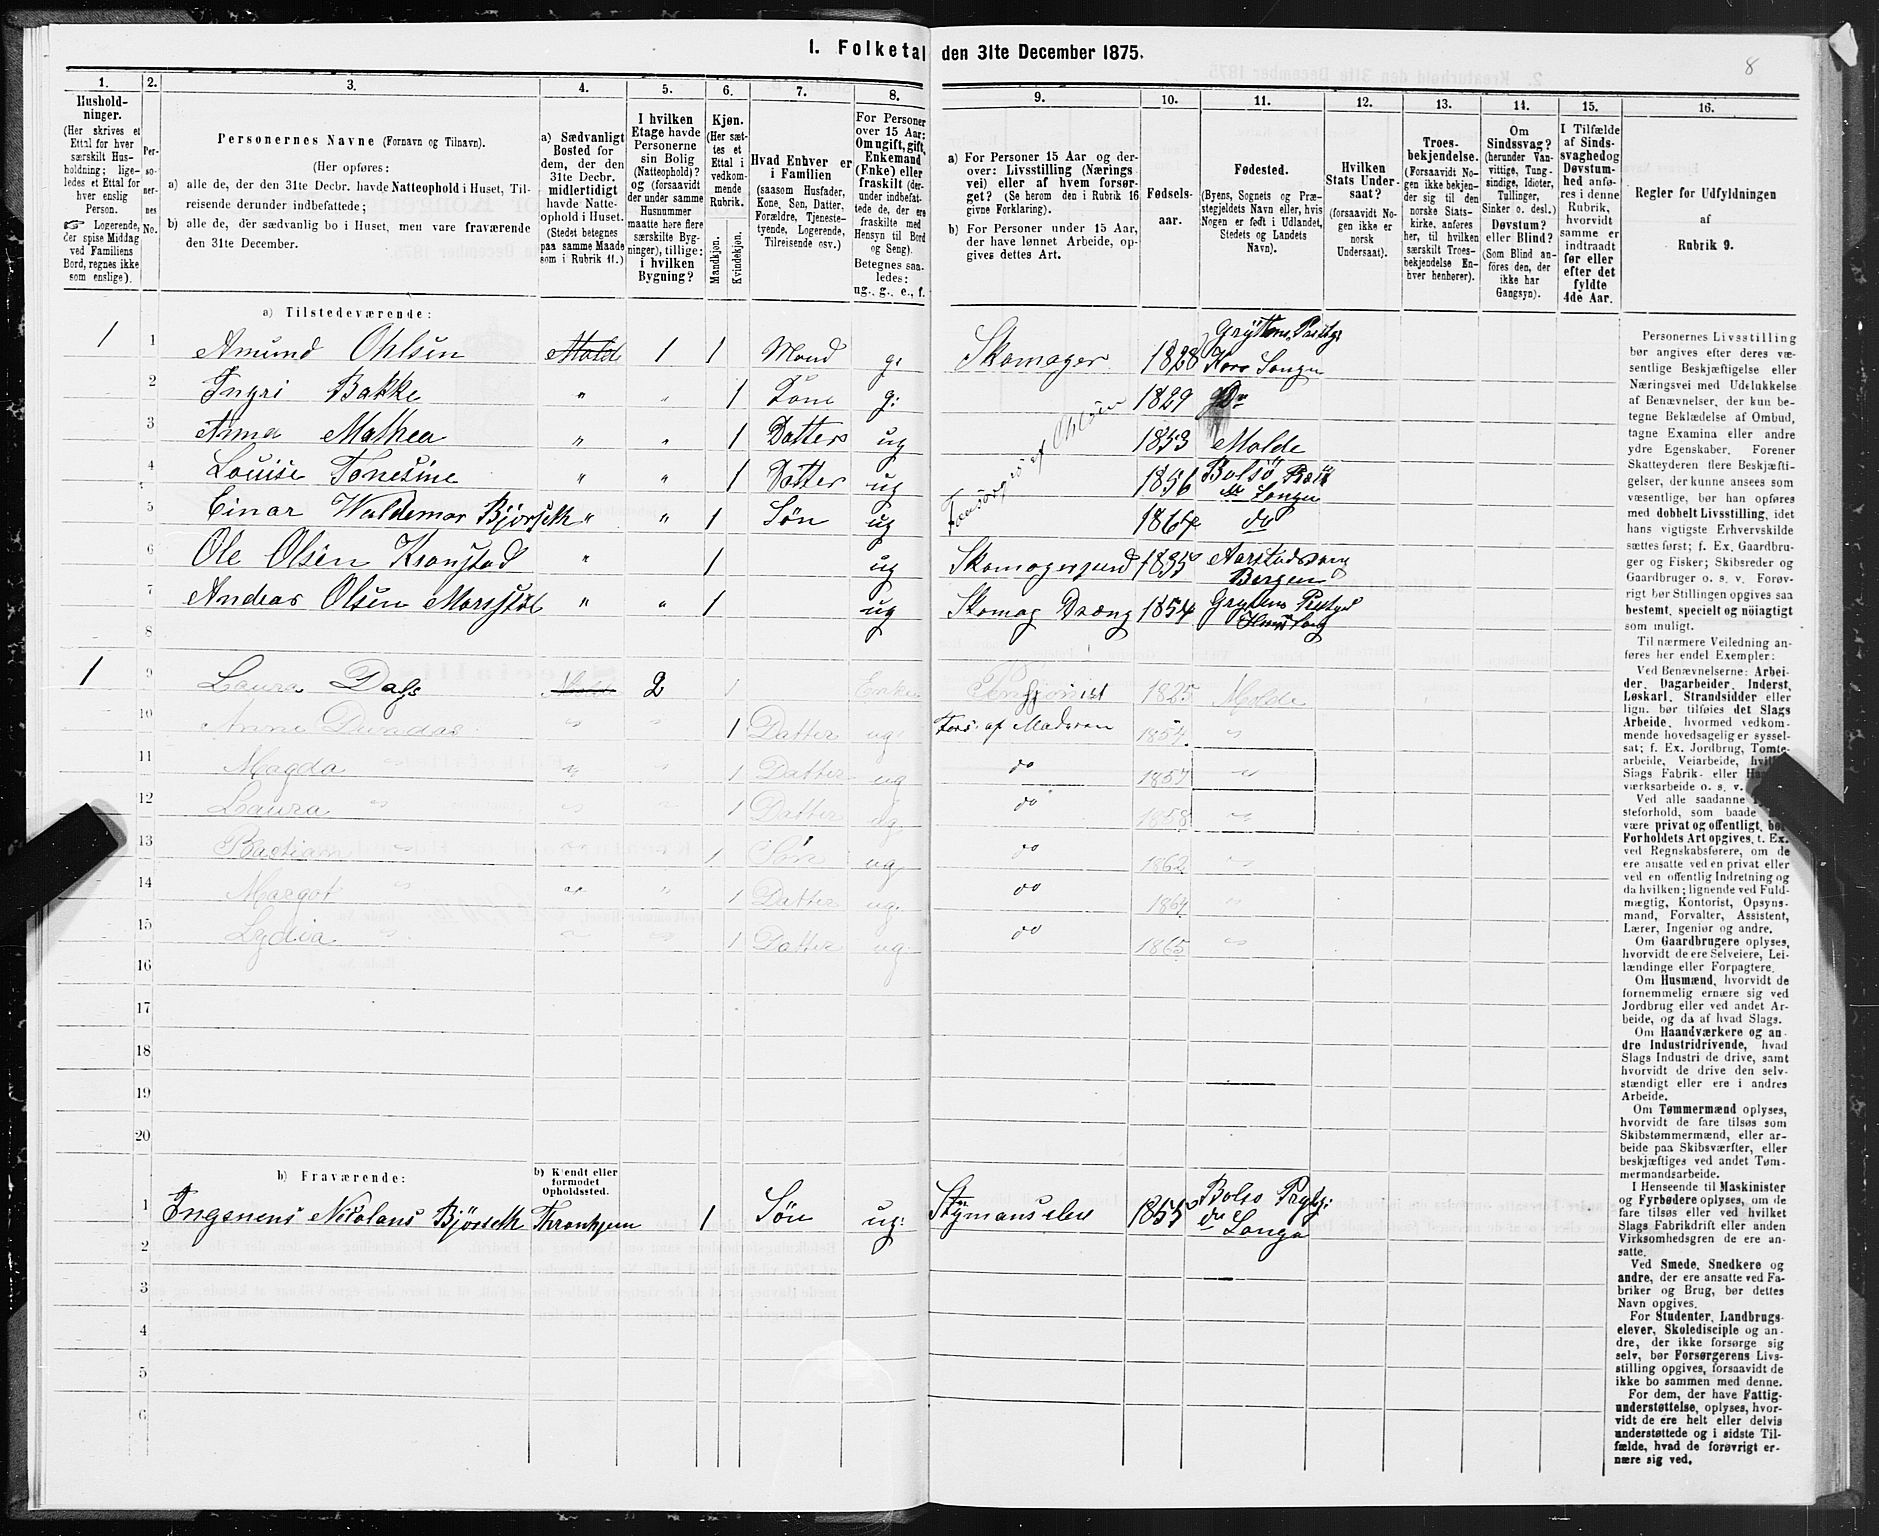 1. Folketal den 31te December 1875.
8
1.
Hushold-
ninger.
(Her skrives et
Ettal for hver
særskilt Hus-
holdning; lige-
ledes et Ettal for
hver enslig
Person.
☞ Logerende,
der spise Middag
ved Familiens
Bord, regnes ikke
som enslige).
2.
Per-
so-
ner-
nes
No.
3.
Personernes Navne (Fornavn og Tilnavn).
(Her opføres:
a) alle de, der den 31te Decbr. havde Natteophold i Huset, Til-
reisende derunder indbefattede;
b) alle de, der sædvanlig bo i Huset, men vare fraværende
den 31te December.
4.
a) Sædvanligt
Bosted for
dem, der den
31te Decbr.
midlertidigt
havde Natte-
ophold i Huset.
(Stedet betegnes
paa samme Maade
som i Rubrik 11.)
5.
I hvilken
Etage havde
Personerne
sin Bolig
(Natteophold)?
og (forsaavidt
der under samme
Husnummer
maatte høre flere
særskilte Byg-
ninger), tillige:
i hvilken
Bygning?
6.
Kjøn.
(Her sæt-
tes et
Ettal i
vedkom-
mende
Rubrik.
Mandkjøn.
Kvindekjøn.
7.
Hvad Enhver er
i Familien
(saasom Husfader,
Kone, Søn, Datter,
Forældre, Tjeneste-
tyende, Logerende,
Tilreisende osv.)
8.
For Personer
over 15 Aar:
Om ugift, gift,
Enkemand
(Enke) eller
fraskilt (der-
under indbefat-
tede de, der ere
fraskilte med
Hensyn til Bord
og Seng).
Betegnes saa-
ledes:
ug., g., e., f.
9.
a) For Personer 15 Aar og der-
over: Livsstilling (Nærings
vei) eller af hvem forsør-
get? (Se herom den i Rubrik 16
givne Forklaring).
b) For Personer under 15 Aar,
der have lønnet Arbeide, op-
gives dettes Art.
10.
Fødsels-
aar.
11.
Fødested.
(Byens, Sognets og Præ-
stegjeldets Navn eller, hvis
Nogen er født i Udlandet,
Stedets og Landets
Navn).
12.
Hvilken
Stats Under-
saat?
(forsaavidt No-
gen ikke er
norsk
Undersaat).
13.
Troes-
bekjendelse.
(Forsaavidt No-
gen ikke bekjen-
der sig til den
norske Stats-
kirke, anføres
her, til hvilken
særskilt Troes-
bekjendelse En-
hver henhører).
14.
Om
Sindssvag?
(herunder Van-
vittige, Tung-
sindige, Idioter,
Tullinger,
Sinker o. desl.)
Døvstum?
eller Blind?
(Som Blind an-
føres den, der
ikke har
Gangsyn).
15.
I Tilfælde
af Sinds-
svaghed og
Døvstum-
hed anfø-
res i denne
Rubrik,
hvorvidt
samme er
indtraadt
før eller
efter det
fyldte
4de Aar.
16.
Regler for Udfyldningen
af
Rubrik 9.
a) Tilstedeværende:
1 1 Amund Ohlsen Molde 1 1 Mand g. Skomager 1828 Gryttens Prestgj:
2 Ingri Bakke " " 1 Kone g: 1829 Do
3 Anna Mathea " " 1 Datter ug 1853 Molde
4 Louise Tonesine " " 1 Datter ug 1856 Bolsø
5 Einar Waldemar Bjørseth " " 1 Søn ug Forsørges af Ohlsen 1864 do
6 Ole Olsen Kronstad " 1 ug Skomagersvend 1835
Bergen
7 Andeas Olsen " " 1 ug Skomag Dræng 1854 Gryttens
8
1 9 Laura Dahl Molde 2 1 Enke Pensjonist 1825 Molde
10 Anne " " 1 Datter ug. Fors: af Moderen 1854 "
11 Magda " " " 1 Datter ug do 1857 "
12 Laura " " " 1 Datter ug. do 1858 "
13 Bastian " " " 1 Søn ug do 1862 "
14 Margot " " " 1 Datter ug. do 1864 "
15 Lydia " " " 1 Datter ug do 1865 "
16
17
18
19
20
b) Fraværende:
b) Kjendt eller
formodet
Opholdssted.
1 Nikolaus Bjørseth Thronhjem 1 Søn ug: Stymanselev 1855 Bolsø
2
3
4
5
6
Personernes Livsstilling
bør angives efter deres væ-
sentlige Beskjæftigelse eller
Næringsvei med Udelukkelse
af Benævnelser, der kun be-
tegne Beklædelse af Ombud,
tagne Examina eller andre
ydre Egenskaber. Forener
Skatteyderen flere Beskjæfti-
gelser, der kunne ansees som
væsentlige, bør han opføres
med dobbelt Livsstilling, idet
hans vigtigste Erhvervskilde
sættes først; f. Ex. Gaardbru-
ger og Fisker; Skibsreder og
Gaardbruger o. s. v. Forøv-
rigt bør Stillingen opgives saa
bestemt, specielt og nöiagtigt
som muligt.
Til nærmere Veiledning an-
føres her endel Exempler:
Ved Benævnelserne: Arbei-
der, Dagarbeider, Inderst,
Løskarl, Strandsidder eller
lign. bør tilføies det Slags
Arbeide, hvormed vedkom-
mende hovedsagelig er syssel-
sat; f. Ex. Jordbrug, Tomte-
arbeide, Veiarbeide,
Slags Fabrik- eller
værksarbeide o. s. v.
Ved alle saadanne
steforhold, som baade
være privat og offentligt,
Forholdets Art opgives, t. Ex.
ved Regnskabsførere, om de
ere ansatte ved en privat eller
ved en offentlig Indretning og
da hvilken; lignende ved Fuld-
mægtig, Kontorist, Opsyns-
mand, Forvalter, Assistent,
Lærer, Ingeniør og andre.
Om Gaardbrugere oplyses,
hvorvidt de ere Selveiere, Lei-
lændinge eller Forpagtere.
Om Husmænd, hvorvidt de
fornemmelig ernære sig ved
Jordbrug eller ved andet Ar-
beide, og da af hvad Slags.
Om Haandværkere og an-
dre Industridrivende, hvad
Slags Industri de drive, samt
hvorvidt de drive den selv-
stændigt eller ere i andres
Arbeide.
Om Tømmermænd oplyses,
hvorvidt de fare tilsøs som
Skibstømmermænd, eller ar-
beide paa Skibsværfter, eller
beskjæftiges ved andet Tøm-
mermandsarbeide.
I Henseende til Maskinister
og Fyrbødere oplyses, om de
fare tilsøs eller ved hvilket
Slags Fabrikdrift eller anden
Virksomhedsgren de ere an-
satte.
Ved Smede, Snedkere og
andre, der ere ansatte ved Fa-
briker og Brug, bør dettes
Navn opgives.
For Studenter, Landbrugs-
elever, Skoledisciple og an-
dre, der ikke forsørge sig
selv, bør Forsørgerens Livs-
stilling opgives, forsaavidt de
ikke bo sammen med denne.
For dem, der have Fattig-
understøttelse, oplyses, hvor-
vidt de ere helt eller delvis
understøttede og i sidste Til-
fælde, hvad de forøvrigt er-
nære sig ved.